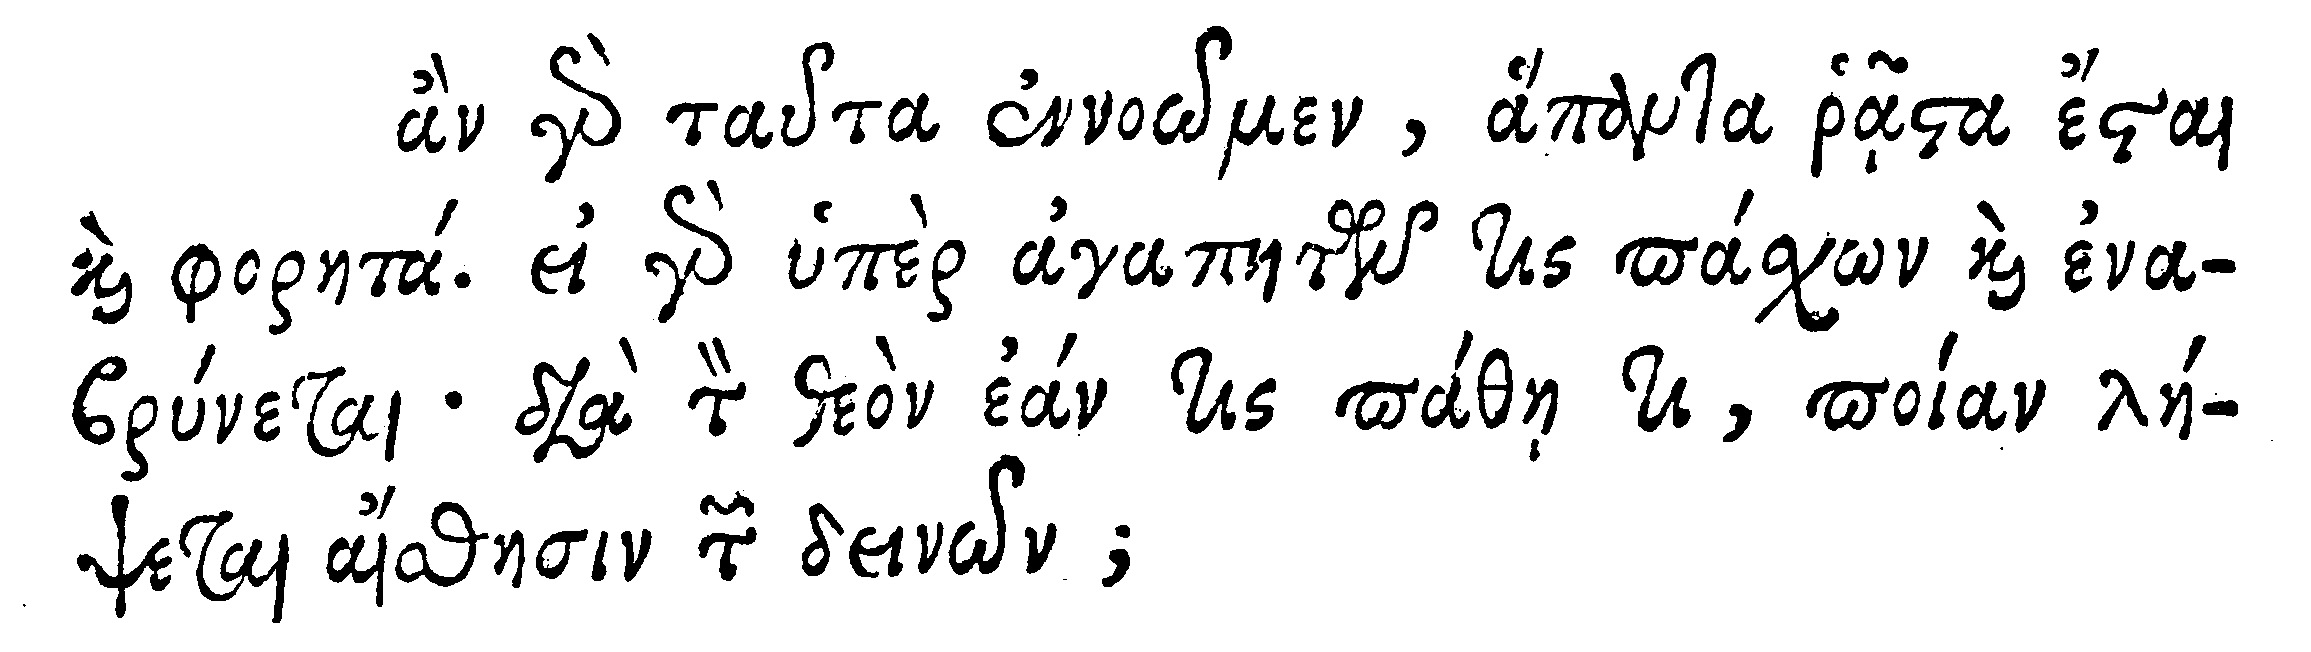 ἂν γὰρ ταῦτα ἐννοῶμεν, ἅπαντα ῥᾷστα ἔσται
καὶ φορητά. εἰ γὰρ ὑπὲρ ἀγαπητοῦ τις πάσχων καὶ ἐνα-
βρύνεται· διὰ τὸν θεὸν ἐάν τις πάθῃ τι, ποίαν λή-
ψεται αἴσθησιν τῶν δεινῶν;